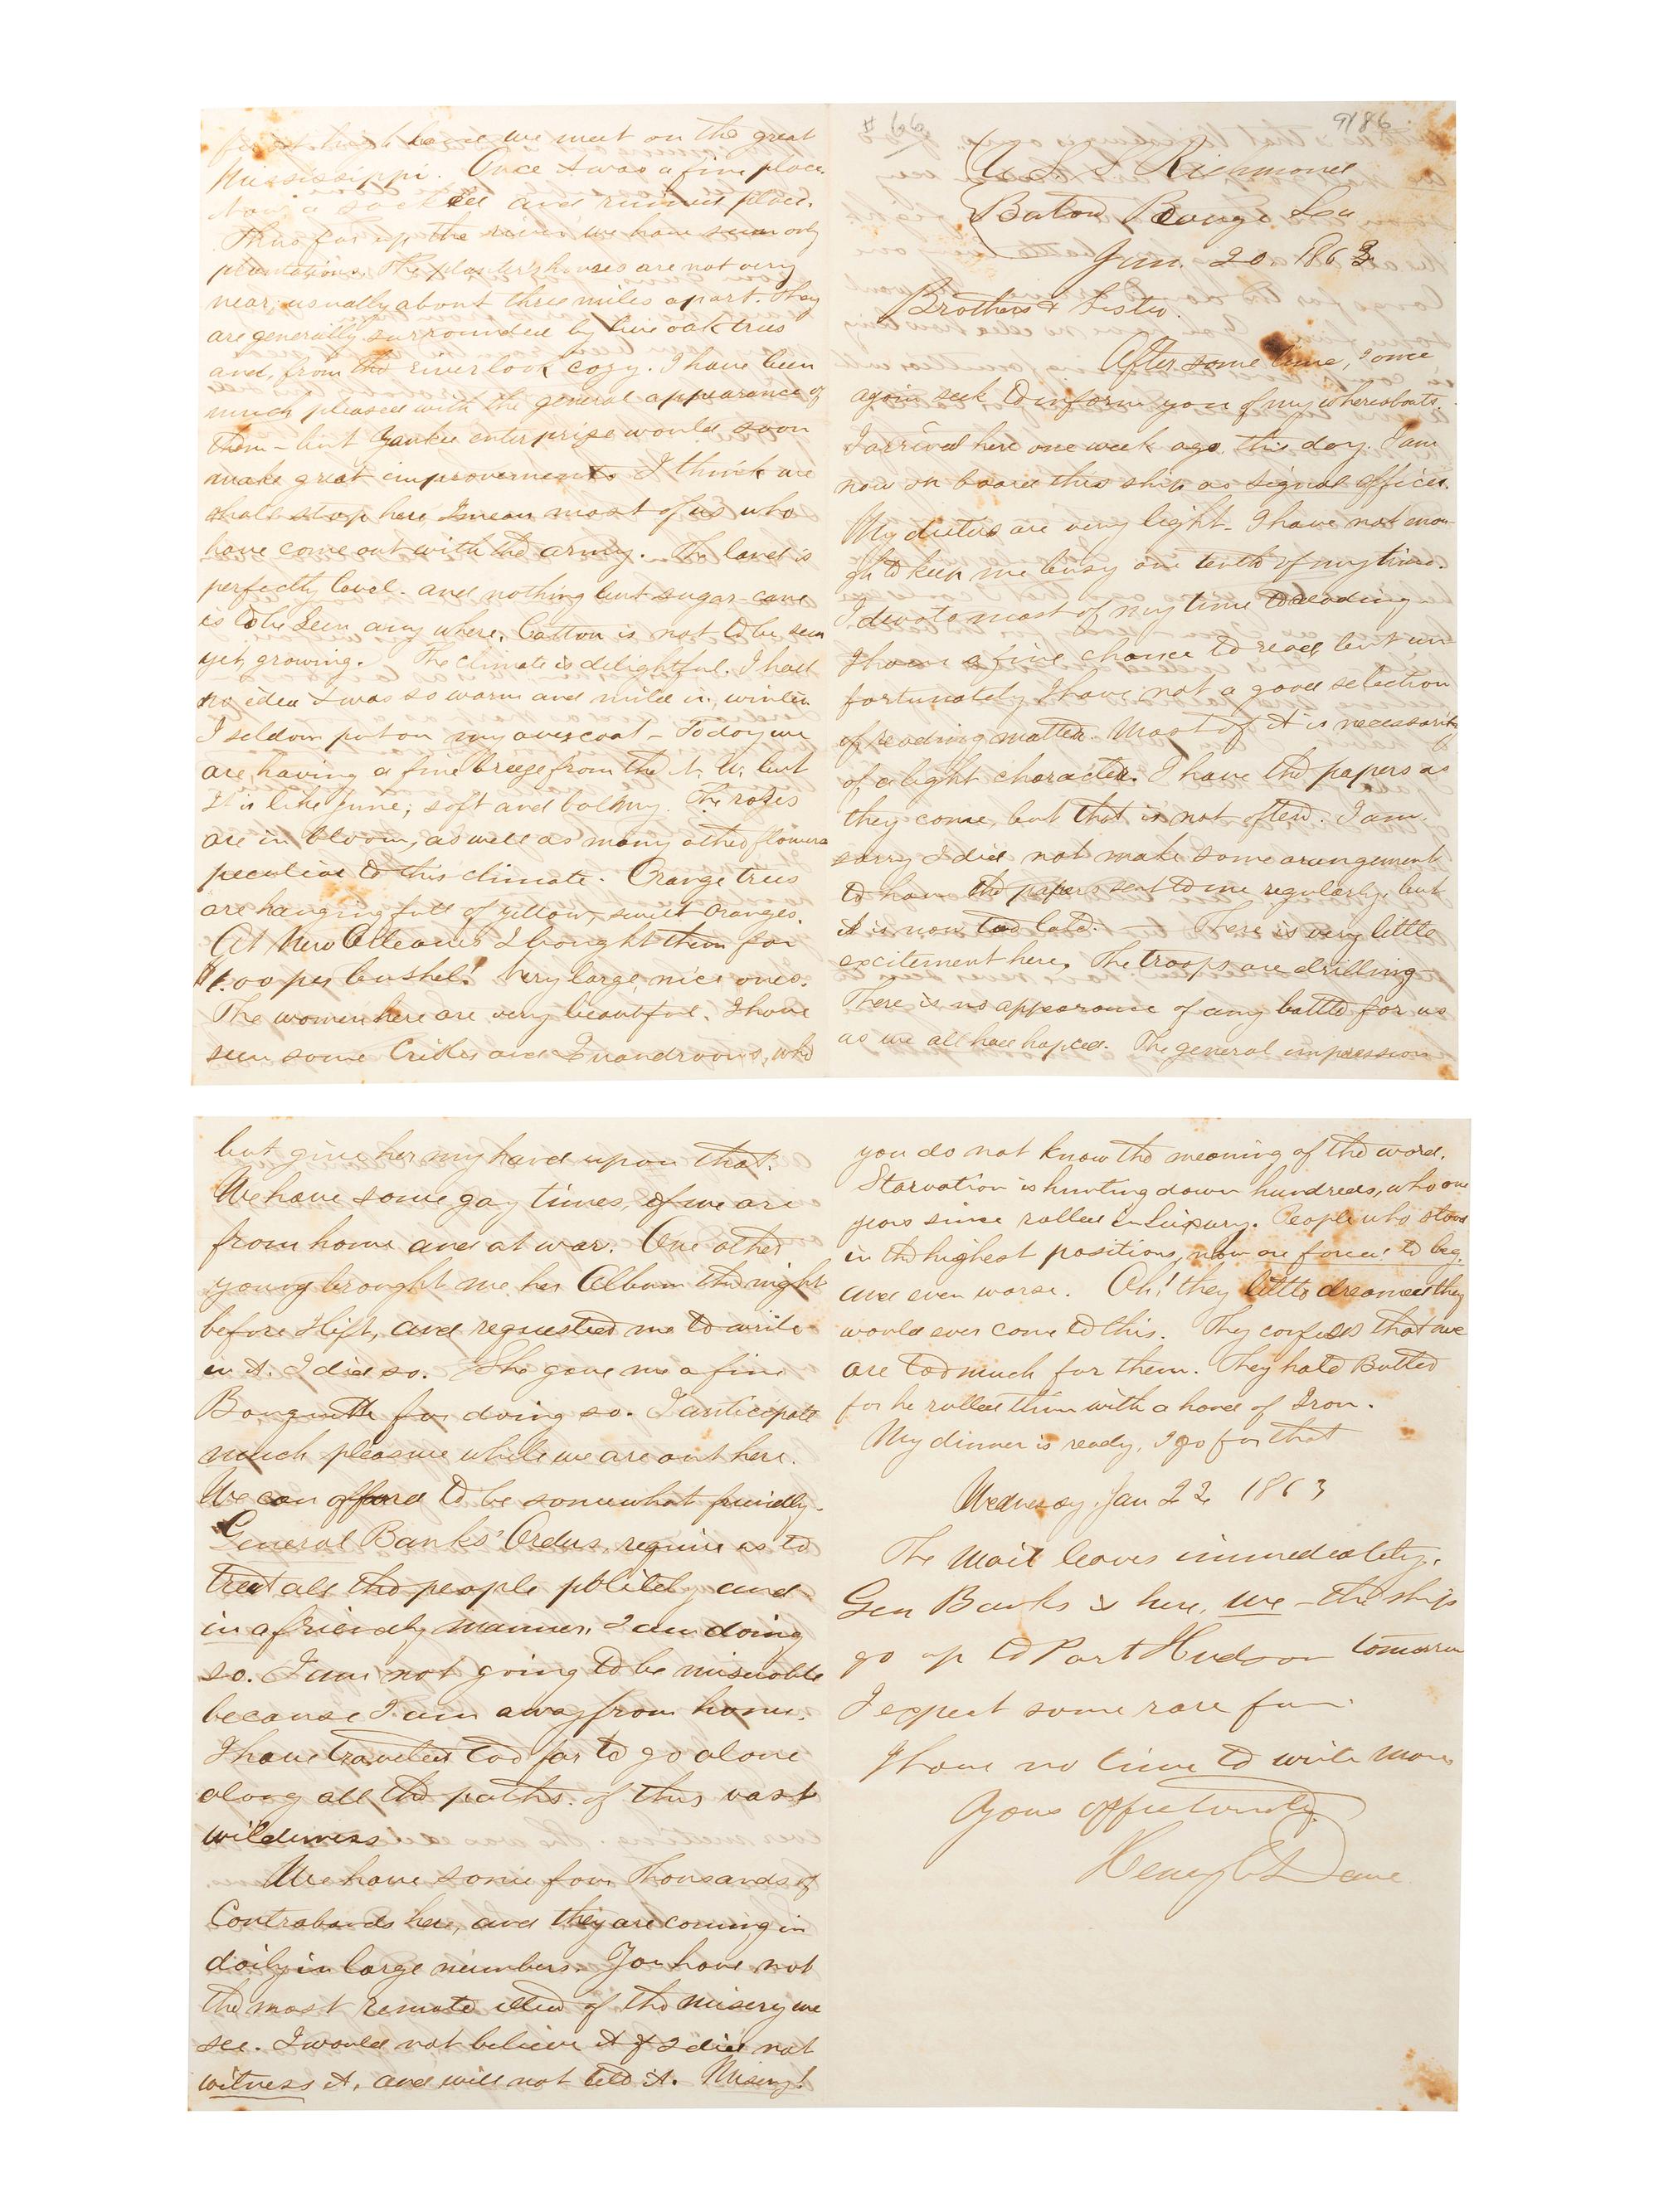 # 66
9186
U. S. S Richmond
Baton Rouge Lou
Jan. 20 1863
Brothers & Sister.
After some time, I once
again seek to inform you of my whereabouts.
I arrived here one week ago, this day. I am
now on board this ship as signal officer.
My duties are very light - I have not enou-
gh to keep me busy one tenth of my time.
I devote most of my time to reading -
I have a fine chance to read but un
fortunately I have not a good selection
of reading matter. Most of it is necessarily
of a light character. I have the papers as
they come, but that is not often. I am
sorry I did not make some arangement
to have the papers sent to me regularly, but
it is now too late. — There is very little
excitement here. The troops are drilling
There is no appearance of any battle for us
as we all had hoped. The general impression
we meet on the great
Mississippi. Once it was a fine place.
Now a sacked and ruined place.
Thus far up the river we have seen only
plantations. The planters houses are not very
near, usually about three miles apart. They
are generally surrounded by live oak trees
and, from the river look cozy. I have been
much pleased with the general appearance of
them - but Yankee enterprise would soon
make great improvements I think we
shall stop here, I mean most of us who
have come out with the army. The land is
perfectly level. and nothing but sugar-cane
is to be seen any where. Cotton is not to be seen
yet, growing. The climate is delightful. I had
no idea it was so warm and mild in winter.
I seldom put on my overcoat - To day we
are having a fine breeze from the N. W. but
It is like June; soft and balmy. The roses
are in bloom, as well as many other flowers
peculiar to this climate. Orange trees
are hanging full of yellow, sweet oranges.
At New Orleans I bought them for
$1.00 per bushel! Very large, nice ones.
The women here are very beautiful. I have
seen some Creoles and Quandroons, who
but give her my hand upon that.
We have some gay times, if we are
from home and at war. One other
young brought me her Album the night
before I left, and requested me to write
in it. I did so. She gave me a fine
Bouquette for doing so. I anticipate
much pleasure while we are out here.
We can afford to be somewhat friendly.
General Banks' Orders, require us to
treat all the people politely and
in a friendly manner. I am doing
so. I am not going to be miserable
because I am away from home.
I have traveled too far to go alone
along all the paths of this vast
wilderness
We have some four thousands of
Contrabands here, and they are coming in
daily in large numbers. You have not
the most remote idea of the misery we
see. I would not believe it if I did not
witness it, and will not tell it. Misery!
you do not know the meaning of the word.
Starvation is hunting down hundreds, who one
year since rolled in luxury. People who stood
in the highest positions, now are forced to beg,
and even worse. Oh! they little dreamed they
would ever come to this. They confess that we
are too much for them. They hate Butler
for he rulled them with a hand of Iron.
My dinner is ready, I go for that
Wednesday Jan 22, 1863
The Mail leaves immediately.
Gen Banks is here, we - the ships
go up to Port Hudson tomorrow
I expect some rare fun.
I have no time to write more
Yours affectionately
Henry C Dane